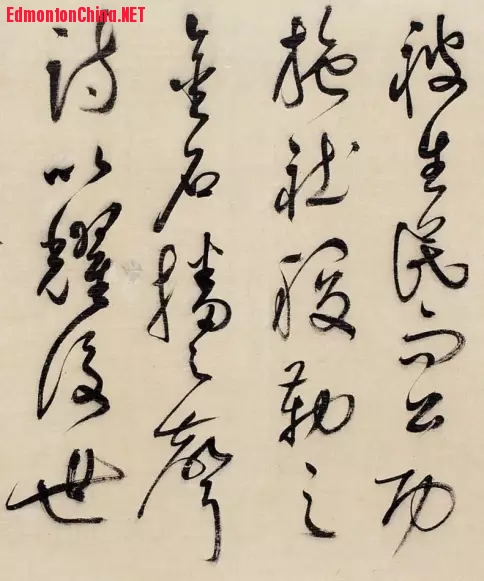 EdmontonChina.NET
被生民而公功
施社稷勒之
金石播之聲
詩以耀後世